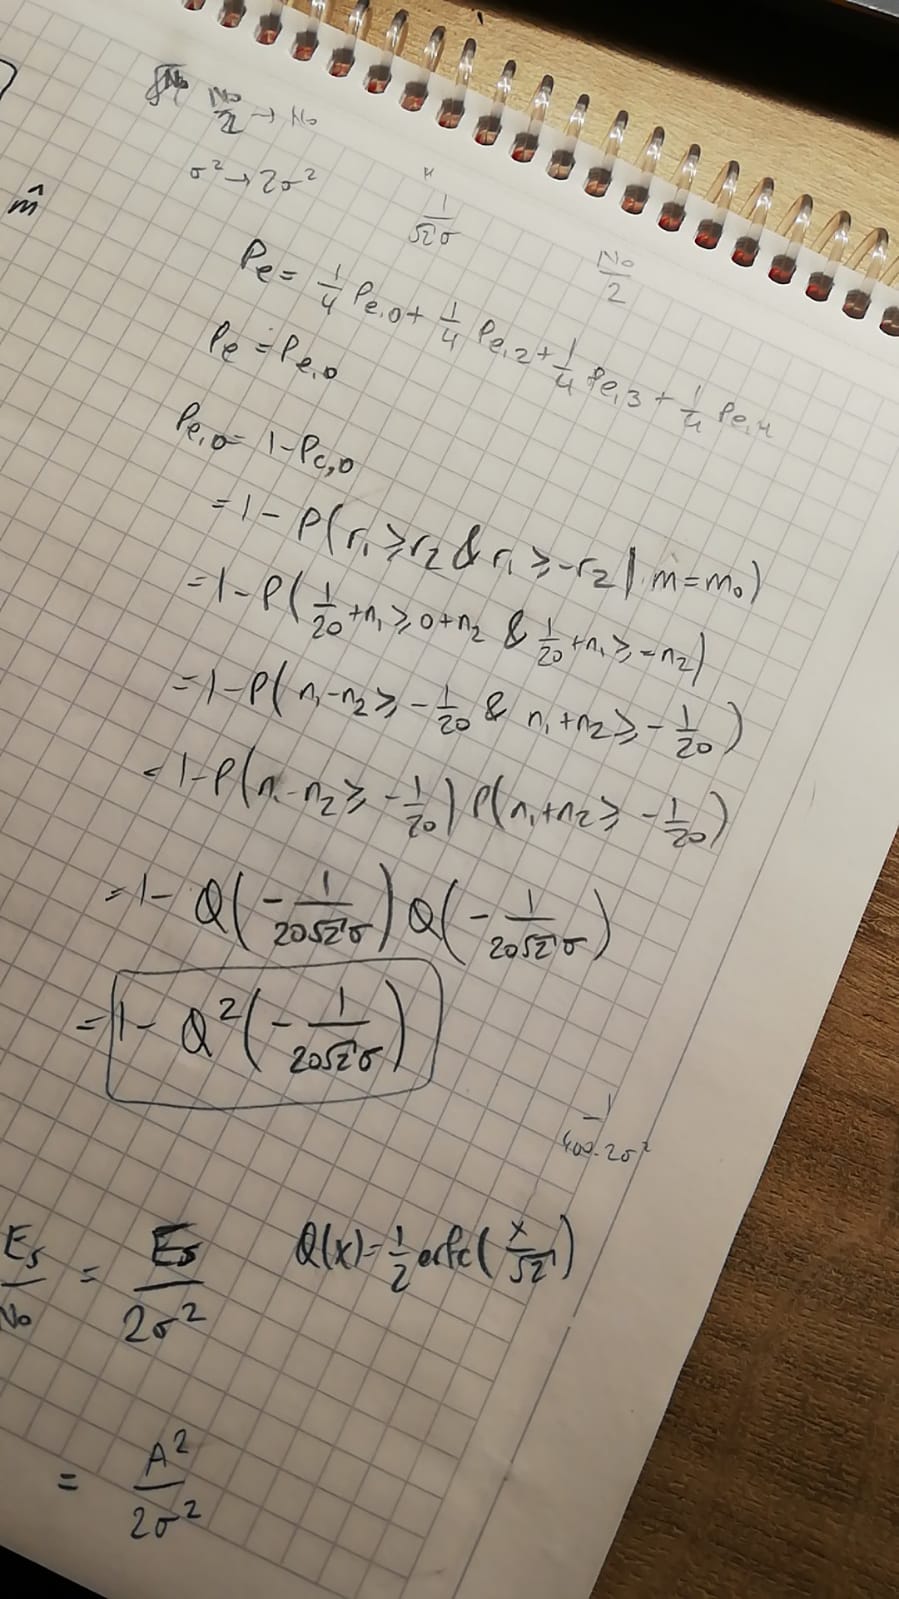 N₀/2 → N₀
σ² → 2σ²
m̂
1/(√2σ)
N₀/2
Pe = 1/4 Pe,0 + 1/4 Pe,2 + 1/4 Pe,3 + 1/4 Pe,4
Pe = Pe,0
Pe,0 = 1 - Pc,0
= 1 - P(r₁ ≥ r₂ & r₁ ≥ -r₂ | m = m₀)
= 1 - P(1/20 + n₁ ≥ 0 + n₂ & 1/20 + n₁ ≥ -n₂)
= 1 - P(n₁ - n₂ ≥ -1/20 & n₁ + n₂ ≥ -1/20)
= 1 - P(n₁ - n₂ ≥ -1/20) P(n₁ + n₂ ≥ -1/20)
= 1 - Q(-1/(20√2σ)) Q(-1/(20√2σ))
= 1 - Q²(-1/(20√2σ))
-1/(400·2σ²)
Es/N₀ = Es/2σ² Q(x) = 1/2 erfc(x/√2)
= A²/2σ²